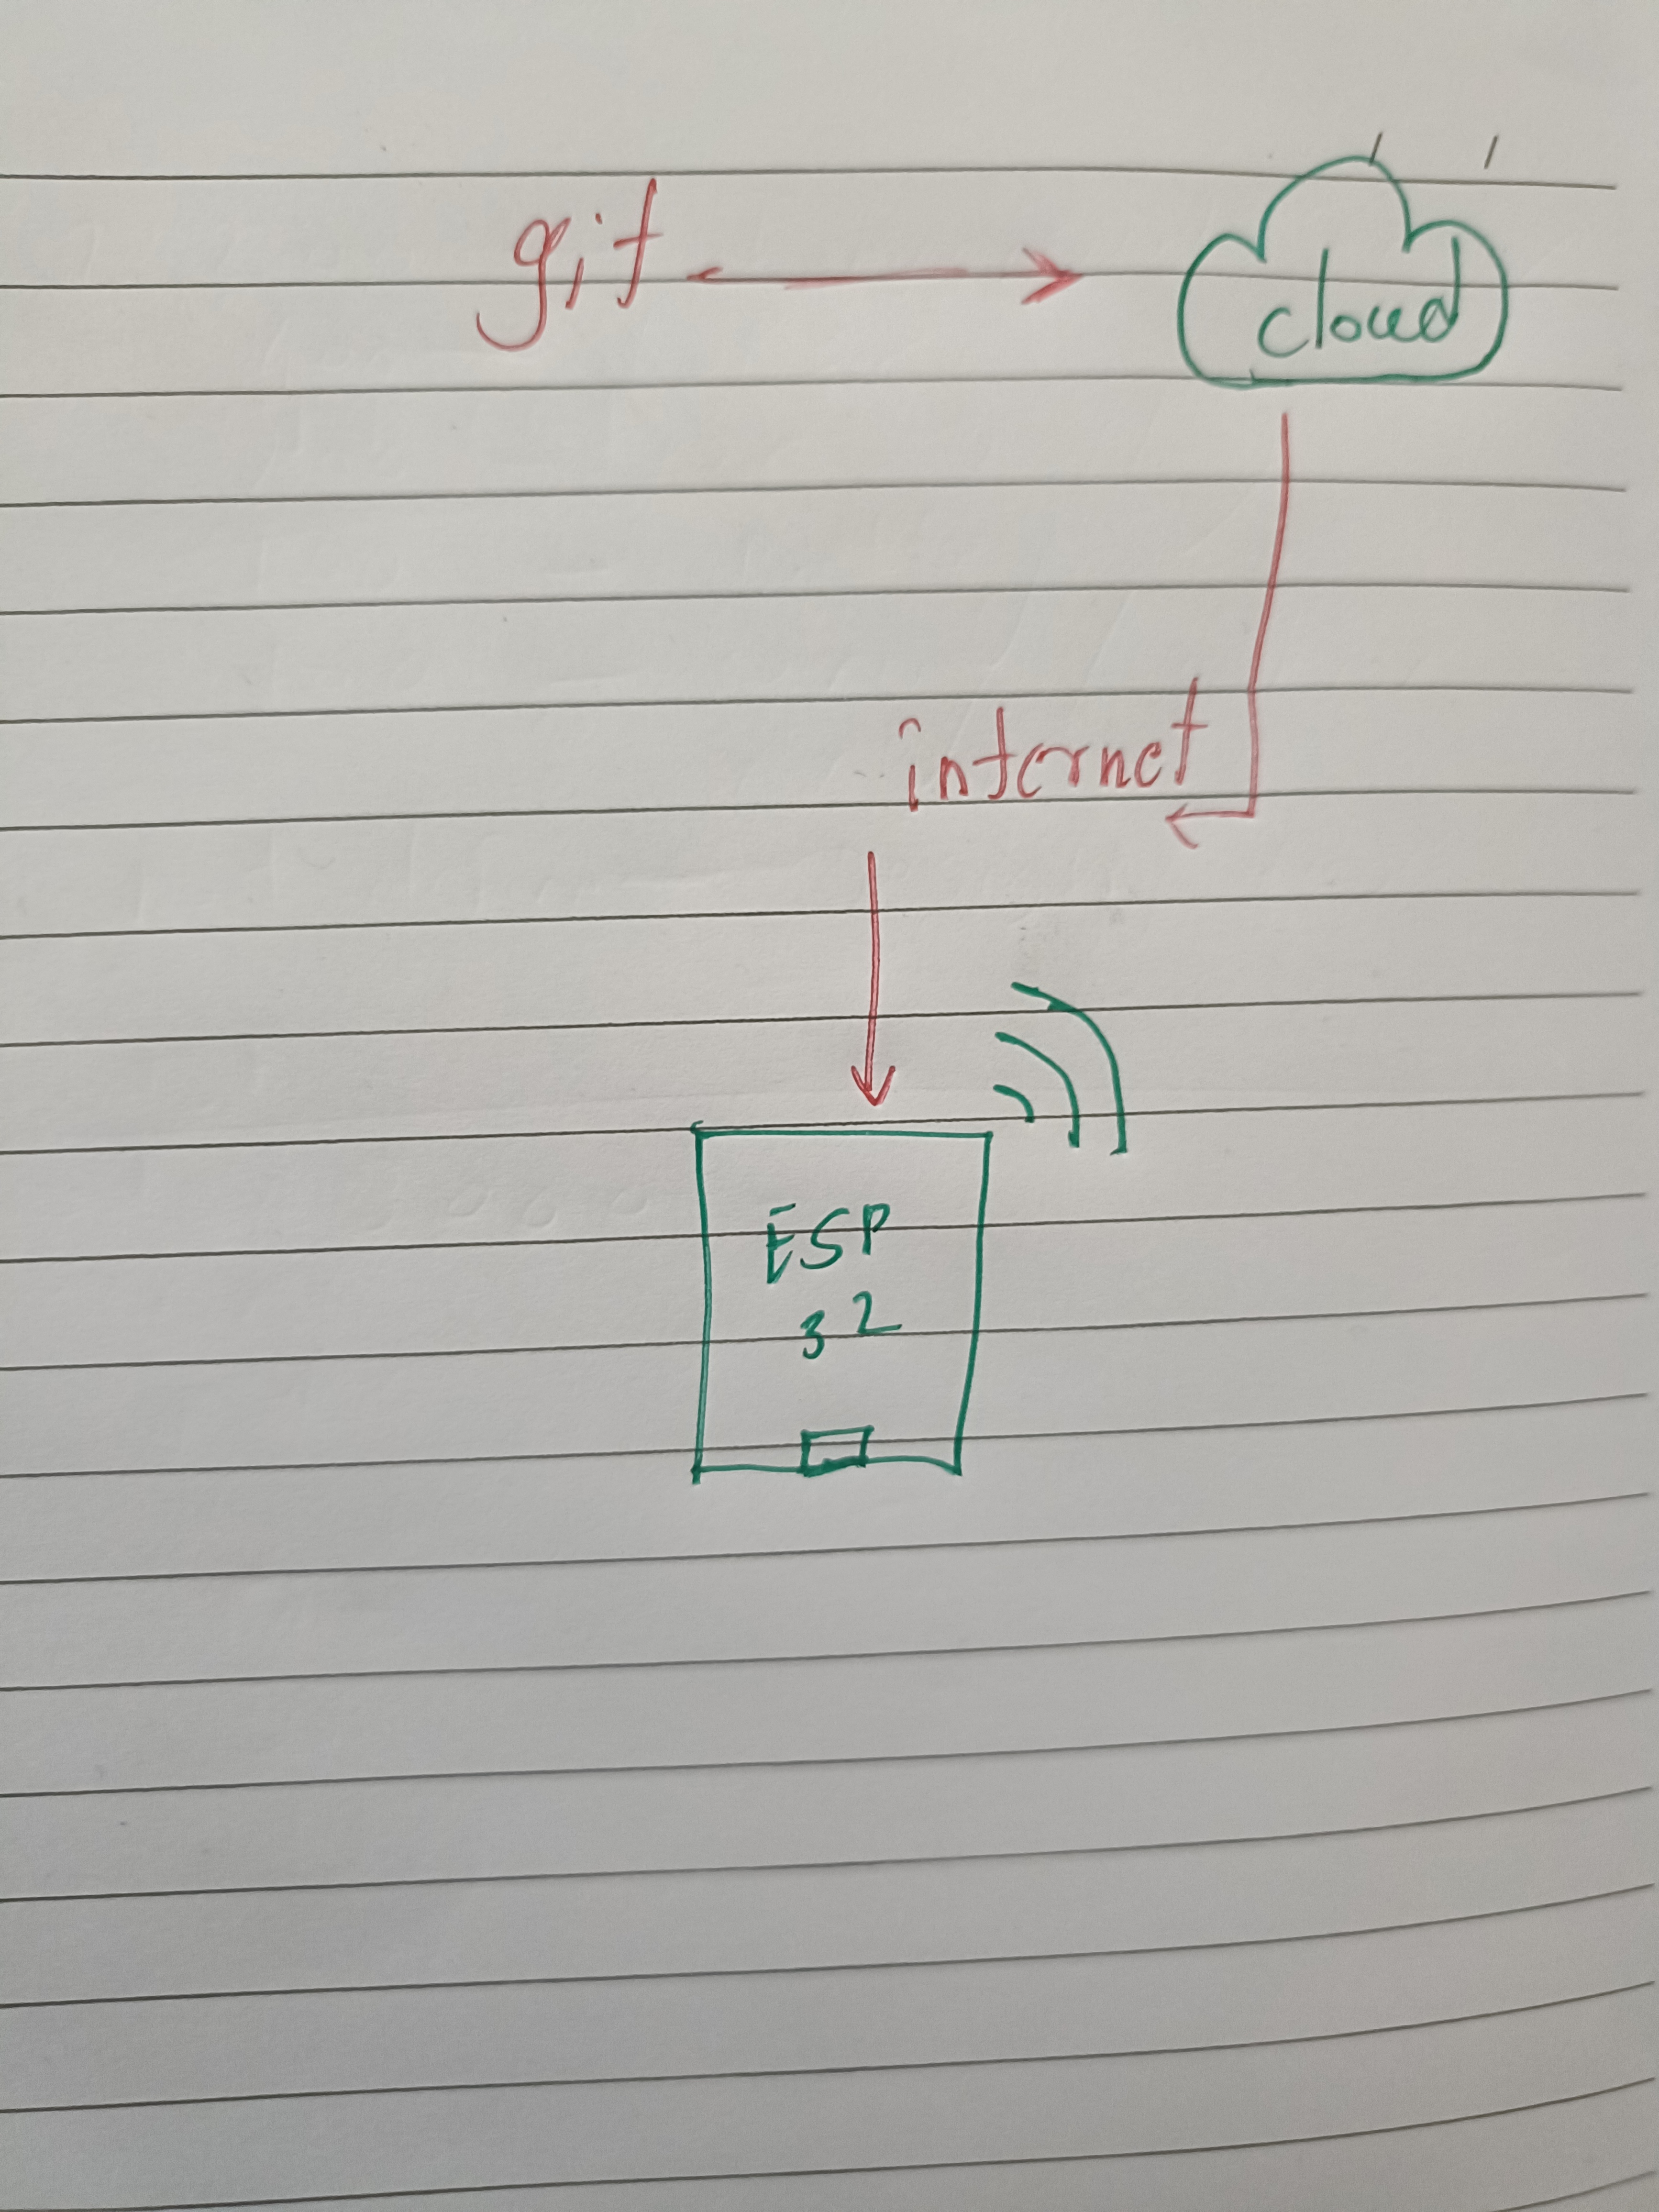 git
cloud
internet
ESP
32